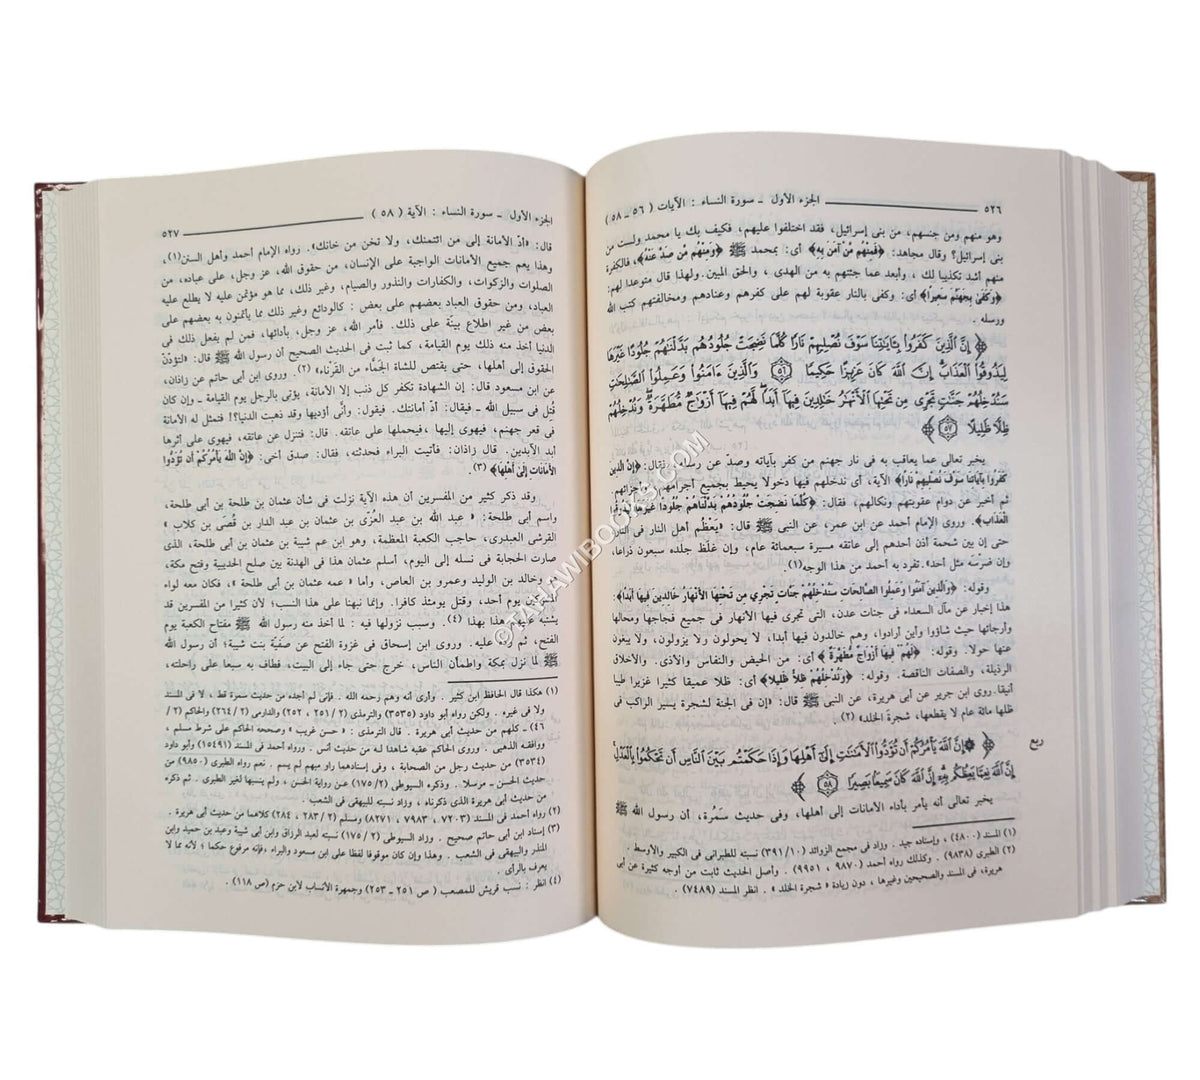 ٥٢٦ الجزء الأول - سورة النساء : الآيات ( ٥٦ - ٥٨ )
وهو منهم ومن جنسهم، من بنى إسرائيل، فقد اختلفوا عليهم، فكيف بك يا محمد ولست من
بنى إسرائيل؟ وقال مجاهد: ﴿فَمِنْهُم مَّنْ آمَنَ بِهِ﴾ أى: بمحمد ﷺ ﴿وَمِنْهُم مَّن صَدَّ عَنْهُ﴾، فالكفرة
منهم أشد تكذيبا لك ، وأبعد عما جئتهم به من الهدى ، والحق المبين. ولهذا قال متوعدا لهم:
﴿وَكَفَىٰ بِجَهَنَّمَ سَعِيرًا﴾ أى: وكفى بالنار عقوبة لهم على كفرهم وعنادهم ومخالفتهم كتب الله
ورسله .
﴿ إِنَّ الَّذِينَ كَفَرُوا بِآيَاتِنَا سَوْفَ نُصْلِيهِمْ نَارًا كُلَّمَا نَضِجَتْ جُلُودُهُم بَدَّلْنَاهُمْ جُلُودًا غَيْرَهَا
لِيَذُوقُوا الْعَذَابَ إِنَّ اللَّهَ كَانَ عَزِيزًا حَكِيمًا ٥٦ وَالَّذِينَ ءَامَنُوا وَعَمِلُوا الصَّالِحَاتِ
سَنُدْخِلُهُمْ جَنَّاتٍ تَجْرِى مِن تَحْتِهَا الْأَنْهَارُ خَالِدِينَ فِيهَا أَبَدًا لَّهُمْ فِيهَا أَزْوَاجٌ مُّطَهَّرَةٌ وَنُدْخِلُهُمْ
ظِلًّا ظَلِيلًا ٥٧ ﴾
يخبر تعالى عما يعاقب به فى نار جهنم من كفر بآياته وصدّ عن رسله ، فقال: ﴿إِنَّ الَّذِينَ
كَفَرُوا بِآيَاتِنَا سَوْفَ نُصْلِيهِمْ نَارًا﴾ الآية، أى: ندخلهم فيها دخولا يحيط بجميع أجرامهم وأجزائهم.
ثم أخبر عن دوام عقوبتهم ونكالهم، فقال: ﴿كُلَّمَا نَضِجَتْ جُلُودُهُم بَدَّلْنَاهُمْ جُلُودًا غَيْرَهَا لِيَذُوقُوا
الْعَذَابَ﴾. وروى الإمام أحمد عن ابن عمر، عن النبى ﷺ قال: «يَعْظُم أهل النار فى النار،
حتى إن بين شحمة أذن أحدهم إلى عاتقه مسيرة سبعمائة عام، وإن غلَظ جلده سبعون ذراعا،
وإن ضرسه مثل أحد». تفرد به أحمد من هذا الوجه(١).
وقوله: ﴿وَالَّذِينَ آمَنُوا وَعَمِلُوا الصَّالِحَاتِ سَنُدْخِلُهُمْ جَنَّاتٍ تَجْرِي مِن تَحْتِهَا الْأَنْهَارُ خَالِدِينَ فِيهَا أَبَدًا﴾:
هذا إخبار عن مآل السعداء فى جنات عدن، التى تجرى فيها الأنهار فى جميع فجاجها ومحالها
وأرجائها حيث شاؤوا وأين أرادوا، وهم خالدون فيها أبدا، لا يحولون ولا يزولون، ولا يبغون
عنها حولا. وقوله: ﴿لَهُمْ فِيهَا أَزْوَاجٌ مُّطَهَّرَةٌ﴾ أى: من الحيض والنفاس والأذى. والأخلاق
الرذيلة، والصفات الناقصة. وقوله: ﴿وَنُدْخِلُهُمْ ظِلًّا ظَلِيلًا﴾ أى: ظلا عميقا كثيرا غزيرا طيبا
أنيقا. روى ابن جرير عن أبى هريرة، عن النبى ﷺ قال: «إن فى الجنة لشجرة يسير الراكب فى
ظلها مائة عام لا يقطعها، شجرة الخلد» (٢)
ربع
﴿ ۞ إِنَّ اللَّهَ يَأْمُرُكُمْ أَن تُؤَدُّوا الْأَمَانَاتِ إِلَىٰ أَهْلِهَا وَإِذَا حَكَمْتُم بَيْنَ النَّاسِ أَن تَحْكُمُوا بِالْعَدْلِ
إِنَّ اللَّهَ نِعِمَّا يَعِظُكُم بِهِ إِنَّ اللَّهَ كَانَ سَمِيعًا بَصِيرًا ٥٨ ﴾
يخبر تعالى أنه يأمر بأداء الأمانات إلى أهلها، وفى حديث سَمُرة، أن رسول الله ﷺ
(١) المسند (٤٨٠٠) ، وإسناده جيد . وزاد فى مجمع الزوائد (٣٩١/١٠) نسبته للطبرانى فى الكبير والأوسط .
(٢) الطبرى (٩٨٣٨) . وكذلك رواه أحمد (٩٨٧٠ ، ٩٩٥١) . وأصل الحديث ثابت من أوجه كثيرة عن أبى
هريرة، فى المسند والصحيحين وغيرها ، دون زيادة « شجرة الخلد » . انظر المسند (٧٤٨٩) .
الجزء الأول - سورة النساء : الآية ( ٥٨ ) ٥٢٧
قال: «أدّ الأمانة إلى من ائتمنك، ولا تخن من خانك». رواه الإمام أحمد وأهل السنن(١)،
وهذا يعم جميع الأمانات الواجبة على الإنسان، من حقوق الله، عز وجل، على عباده، من
الصلوات والزكوات، والكفارات والنذور والصيام، وغير ذلك، مما هو مؤتمن عليه لا يطلع عليه
العباد، ومن حقوق العباد بعضهم على بعض : كالودائع وغير ذلك مما يأتمنون به بعضهم على
بعض من غير اطلاع بيّنة على ذلك. فأمر الله، عز وجل، بأدائها، فمن لم يفعل ذلك فى
الدنيا أخذ منه ذلك يوم القيامة، كما ثبت فى الحديث الصحيح أن رسول الله ﷺ قال: «لتؤدّنّ
الحقوق إلى أهلها، حتى يقتص للشاة الجمَّاء من القَرْناء» (٢). وروى ابن أبى حاتم عن زاذان،
عن ابن مسعود قال: إن الشهادة تكفر كل ذنب إلا الأمانة، يؤتى بالرجل يوم القيامة - وإن كان
قُتل فى سبيل الله - فيقال: أدّ أمانتك. فيقول: وأنَّى أؤديها وقد ذهبت الدنيا؟! فتمثل له الأمانة
فى قعر جهنم، فيهوى إليها ،فيحملها على عاتقه. قال: فتنزل عن عاتقه، فيهوى على أثرها
أبد الآبدين. قال زاذان: فأتيت البراء فحدثته، فقال: صدق أخى: ﴿إِنَّ اللَّهَ يَأْمُرُكُمْ أَن تُؤَدُّوا
الْأَمَانَاتِ إِلَىٰ أَهْلِهَا﴾ (٣).
وقد ذكر كثير من المفسرين أن هذه الآية نزلت فى شأن عثمان بن طلحة بن أبى طلحة،
واسم أبى طلحة: « عبد الله بن عبد العُزّى بن عثمان بن عبد الدار بن قُصَى بن كلاب »
القرشى العبدرى، حاجب الكعبة المعظمة، وهو ابن عم شيبة بن عثمان بن أبى طلحة، الذى
صارت الحجابة فى نسله إلى اليوم، أسلم عثمان هذا فى الهدنة بين صلح الحديبية وفتح مكة،
وخالد بن الوليد وعمرو بن العاص، وأما « عمه عثمان بن أبى طلحة » ، فكان معه لواء
يوم أحد، وقتل يومئذ كافرا. وإنما نبهنا على هذا النسب؛ لأن كثيرا من المفسرين قد
يشتبه عليهم هذا بهذا (٤). وسبب نزولها فيه : لما أخذ منه رسول الله ﷺ مفتاح الكعبة يوم
الفتح، ثم رده عليه. وروى ابن إسحاق فى غزوة الفتح عن صَفيَّة بنت شيبة؛ أن رسول الله
ﷺ لما نزل بمكة واطمأن الناس، خرج حتى جاء إلى البيت، فطاف به سبعا على راحلته،
(١) هكذا قال الحافظ ابن كثير . وأرى أنه وهم رحمه الله . فإنى لم أجده من حديث سمرة قط، لا فى المسند
ولا فى غيره . ولكن رواه أبو داود (٣٥٣٥) والترمذى (٢ / ٢٥١ ، ٢٥٢) والدارمى (٢ / ٢٦٤) والحاكم (٢ /
٤٦) - كلهم من حديث أبى هريرة . قال الترمذى : « حسن غريب » وصححه الحاكم على شرط مسلم ،
ووافقه الذهبى . وروى الحاكم عقبه شاهدا له من حديث أنس . ورواه أحمد فى المسند (١٥٤٩١) وأبو داود
(٣٥٣٤) من حديث رجل من الصحابة ، وفى إسنادهما راو مبهم لم يسم . نعم رواه الطبرى (٩٨٥٠) من
حديث الحسن- مرسلا . وذكره السيوطى (٢/ ١٧٥) عن رواية الحسن ، ولم ينسبها لغير الطبرى . ثم ذكره
من حديث أبى هريرة الذى ذكرناه ، وزاد نسبته للبيهقى فى الشعب .
(٢) رواه أحمد فى المسند (٧٢٠٣ ، ٧٩٨٣ ، ٨٢٧١) ومسلم (٢ / ٢٨٣ ، ٢٨٤) كلاهما من حديث أبى هريرة .
(٣) إسناد ابن أبى حاتم صحيح . وزاد السيوطى (٢ / ١٧٥) نسبته لعبد الرزاق وابن أبى شيبة وعبد بن حميد وابن
المنذر والبيهقى فى الشعب . وهذا وإن كان موقوفا لفظا على ابن مسعود والبراء ، فإنه مرفوع حكما ؛ لأنه مما لا
يعرف بالرأى
(٤) انظر : نسب قريش للمصعب ( ص ٢٥١ - ٢٥٣) وجمهرة الأنساب لابن حزم (ص ١١٨) .
©TAHAWIBOOKS.COM